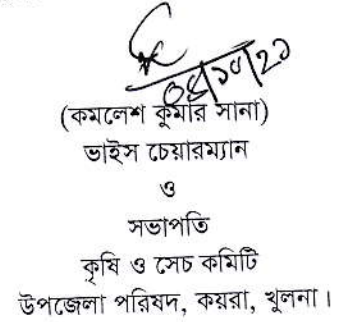 ০৪/১০/২১
(কমলেশ কুমার সানা)
ভাইস চেয়ারম্যান
ও
সভাপতি
কৃষি ও সেচ কমিটি
উপজেলা পরিষদ, কয়রা, খুলনা।